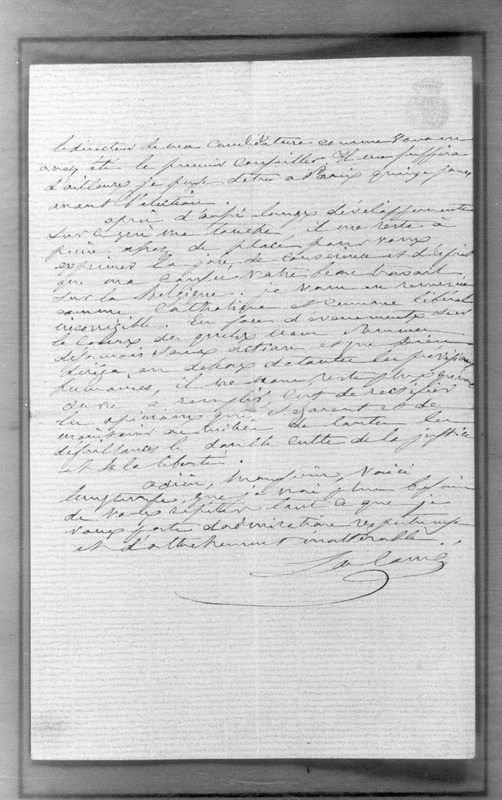 le direction de ma candidature comme vous en
avez été le premier conseiller. Il me suffira
d'ailleurs je pense d'être à Paris quinze jours
avant l'élection.
après d'aussi longs développements
sur ce qui me touche il me reste à
peine assez de place pour vous
exprimer la joie de conscience et d'esprit
que m'a causée votre beau travail
sur la Belgique. je vous en remercie
comme Catholique et comme libéral
incorrigible. En face d'evenements sur
le cours des quels nous sommes
désormais sans action et que Dieu
dirige en dehors de toutes les prévisions
humaines, il ne nous reste plus qu'une
œuvre à remplir, c'est de rectifier
les opinions qui s'égarent et de
maintenir au milieu de toutes les
défaillances le double culte de la justice
et de la liberté.
adieu, Monsieur, voici
longtemps que je n'ai plus besoin
de vous répéter tout ce que je
vous porte d'admiration respectueuse
et d'attachement inaltérable.